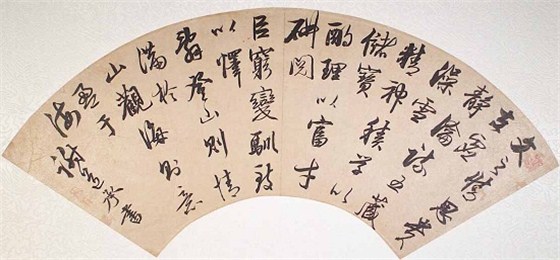 文之情思貴
在虛
靜疏瀹五藏
澡雪
精神積學以
儲寶
酌理以富才
研閱
㠯窮變馴致
以懌
辭登山則情
滿於
山觀海則意
溢于
海
書